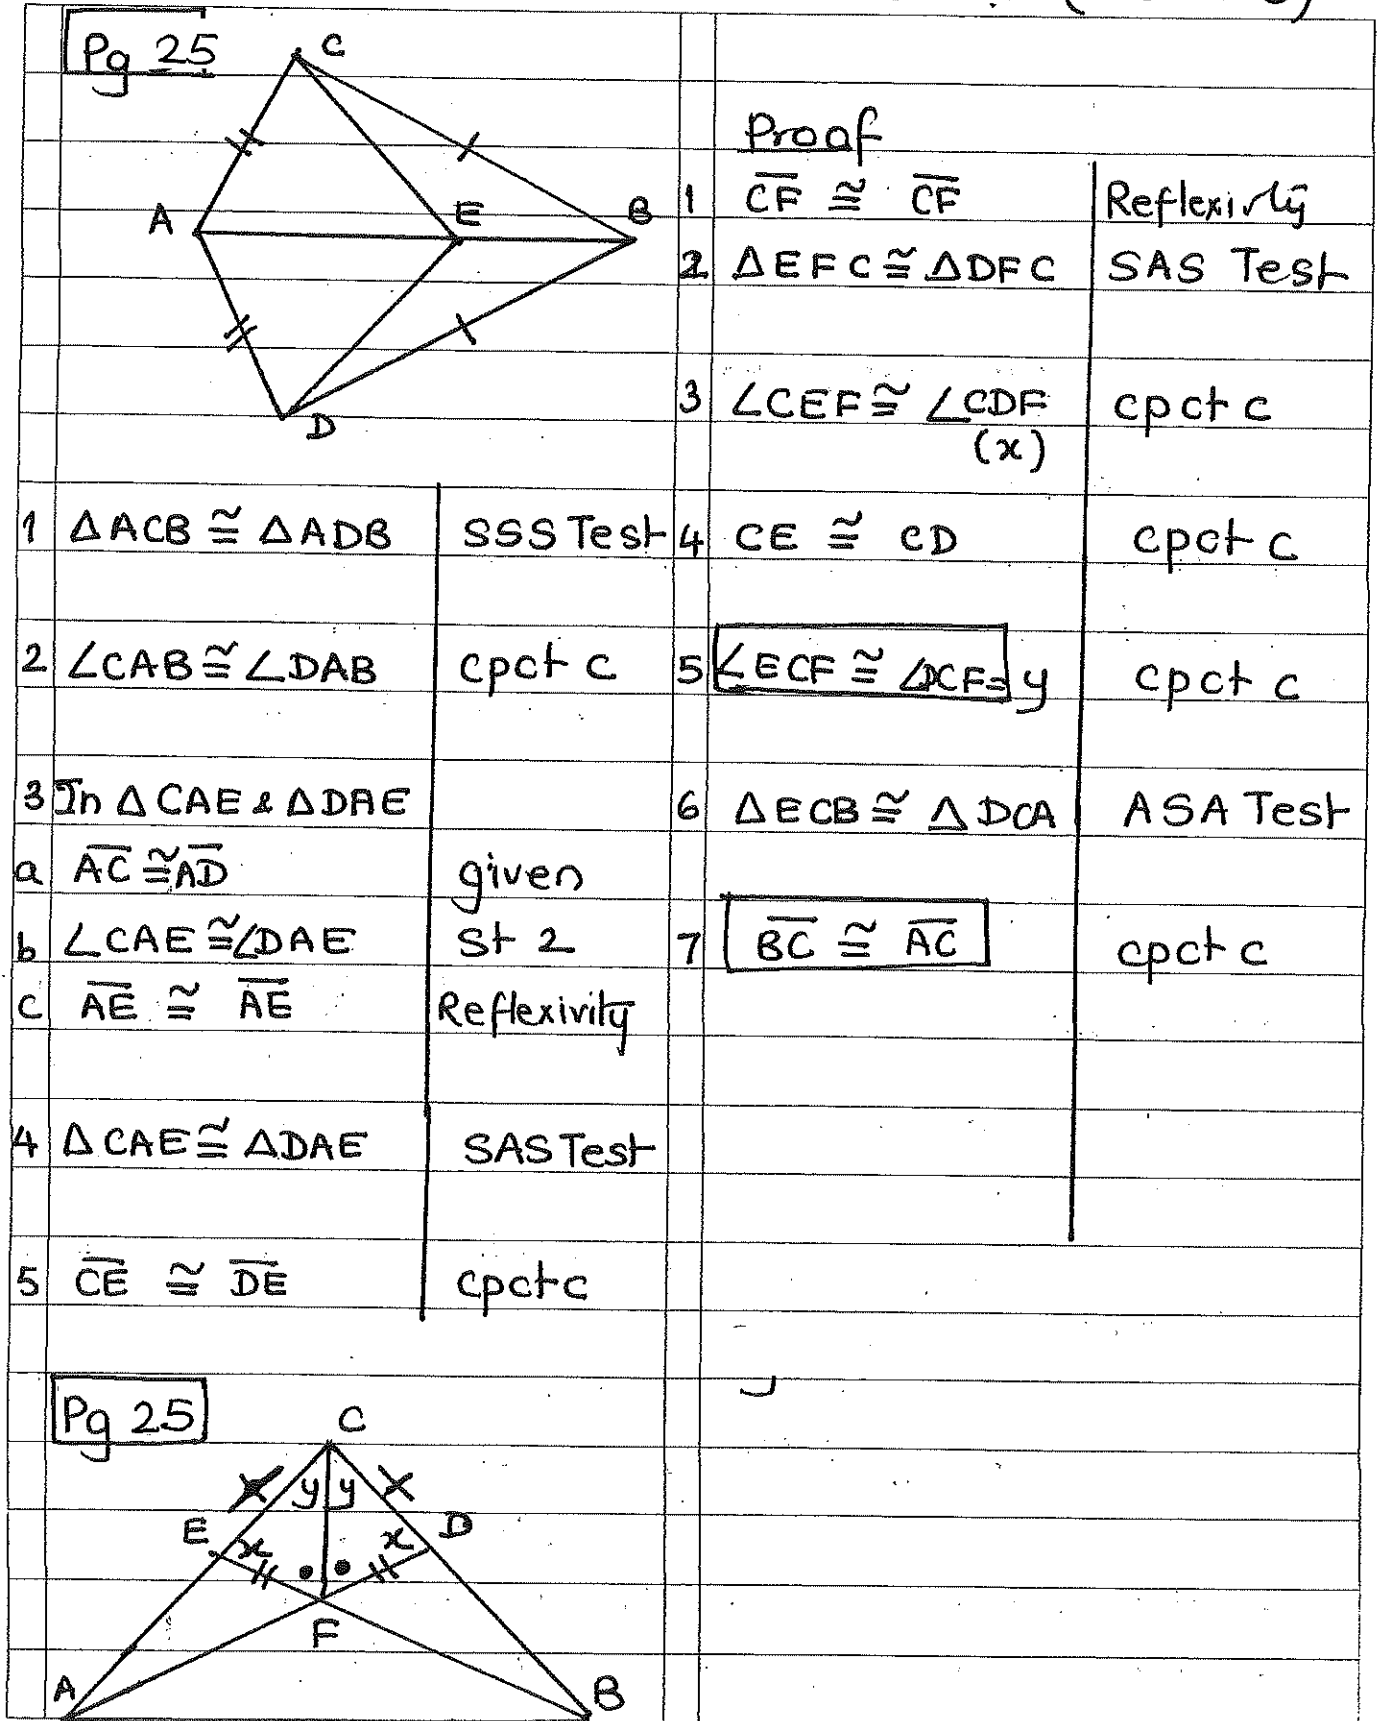 Pg 25
C
A
E
B
D
1 ΔACB ≅ ΔADB SSS Test
2 ∠CAB ≅ ∠DAB cpctc
3 In ΔCAE & ΔDAE
a AC ≅ AD given
b ∠CAE ≅ ∠DAE St 2
c AE ≅ AE Reflexivity
4 ΔCAE ≅ ΔDAE SAS Test
5 CE ≅ DE cpctc
Pg 25
C
y y
E
x
x
D
F
A
B
Proof
1 CF ≅ CF Reflexivity
2 ΔEFC ≅ ΔDFC SAS Test
3 ∠CEF ≅ ∠CDF cpctc
(x)
4 CE ≅ CD cpctc
5 ∠ECF ≅ ∠DCF = y cpctc
6 ΔECB ≅ ΔDCA ASA Test
7 BC ≅ AC cpctc